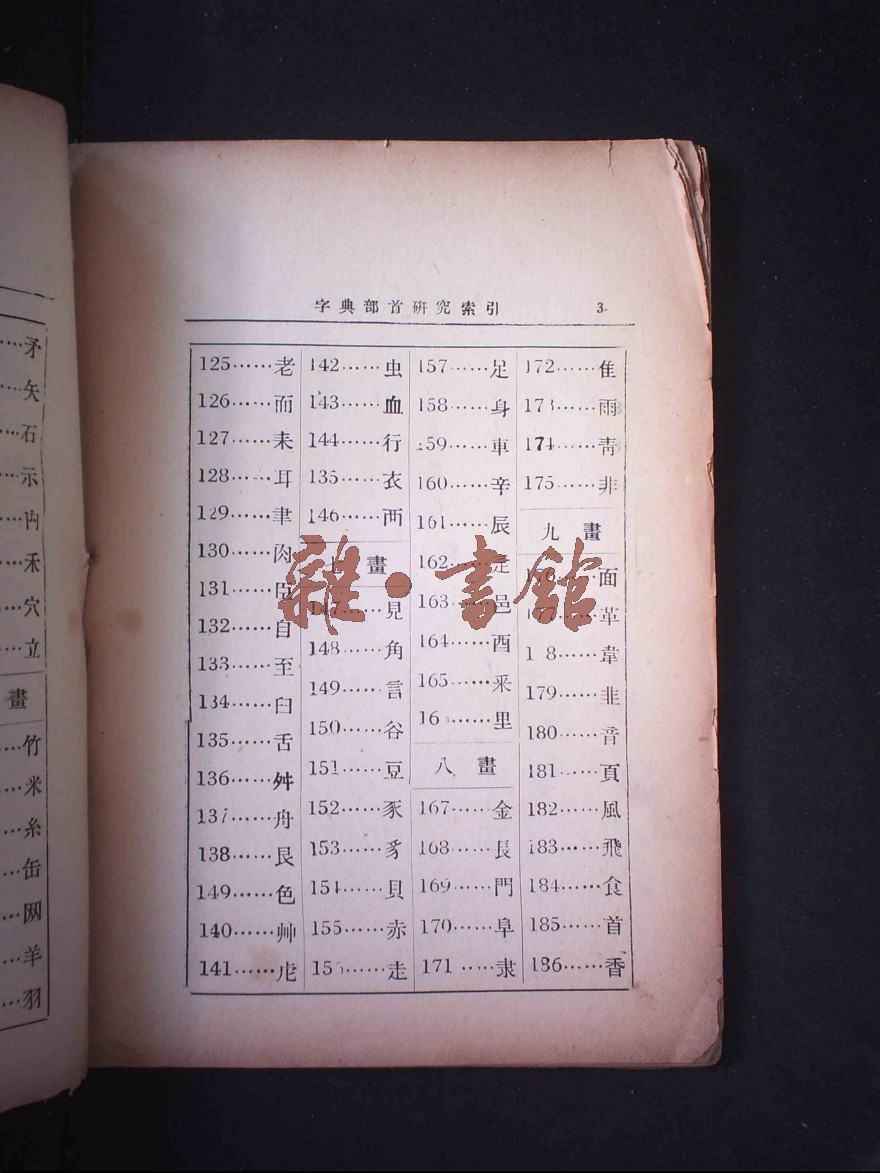 字典部首研究索引 3
125……老
126……而
127……耒
128……耳
129……聿
130……肉
131……臣
132……自
133……至
134……臼
135……舌
136……舛
137……舟
138……艮
149……色
140……艸
141……虍
142……虫
143……血
144……行
135……衣
146……襾
七 畫
147……見
148……角
149……言
150……谷
151……豆
152……豕
153……豸
154……貝
155……赤
156……走
157……足
158……身
159……車
160……辛
161……辰
162……辵
163……邑
164……酉
165……釆
16……里
八 畫
167……金
168……長
169……門
170……阜
171……隶
172……隹
173……雨
174……靑
175……非
九 畫
176……面
177……革
1 8……韋
179……韭
180……音
181……頁
182……風
183……飛
184……食
185……首
186……香
雜·書館
…矛
…矢
…石
…示
…禸
…禾
…穴
…立
畫
…竹
…米
…糸
…缶
…网
…羊
…羽